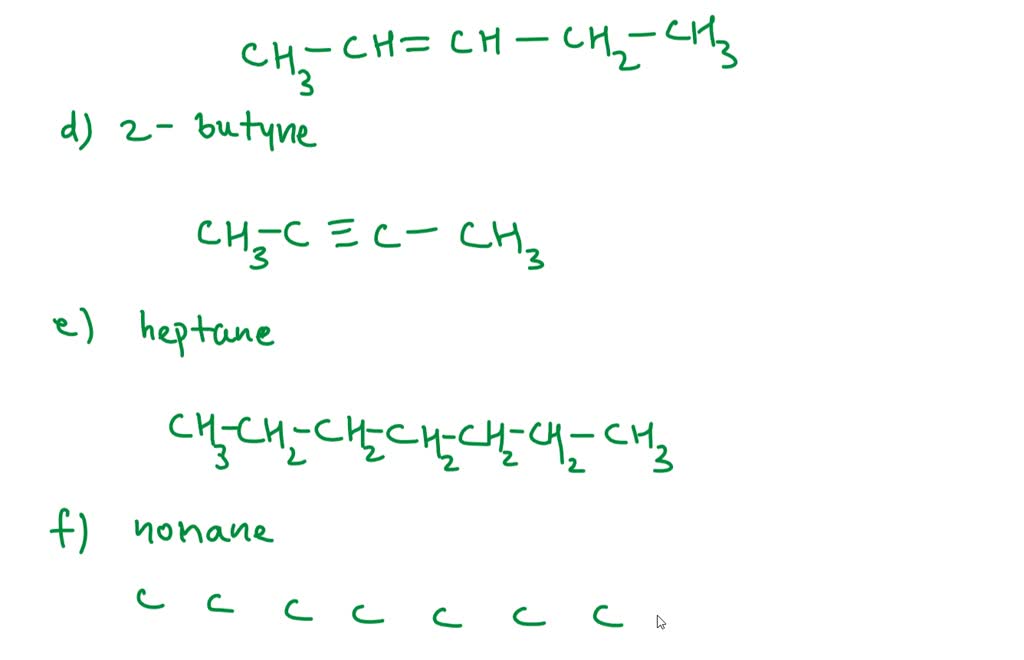 CH₃−CH=CH−CH₂−CH₃
d) 2- butyne
CH₃−C≡C−CH₃
e) heptane
CH₃−CH₂−CH₂−CH₂−CH₂−CH₂−CH₃
f) nonane
C C C C C C C